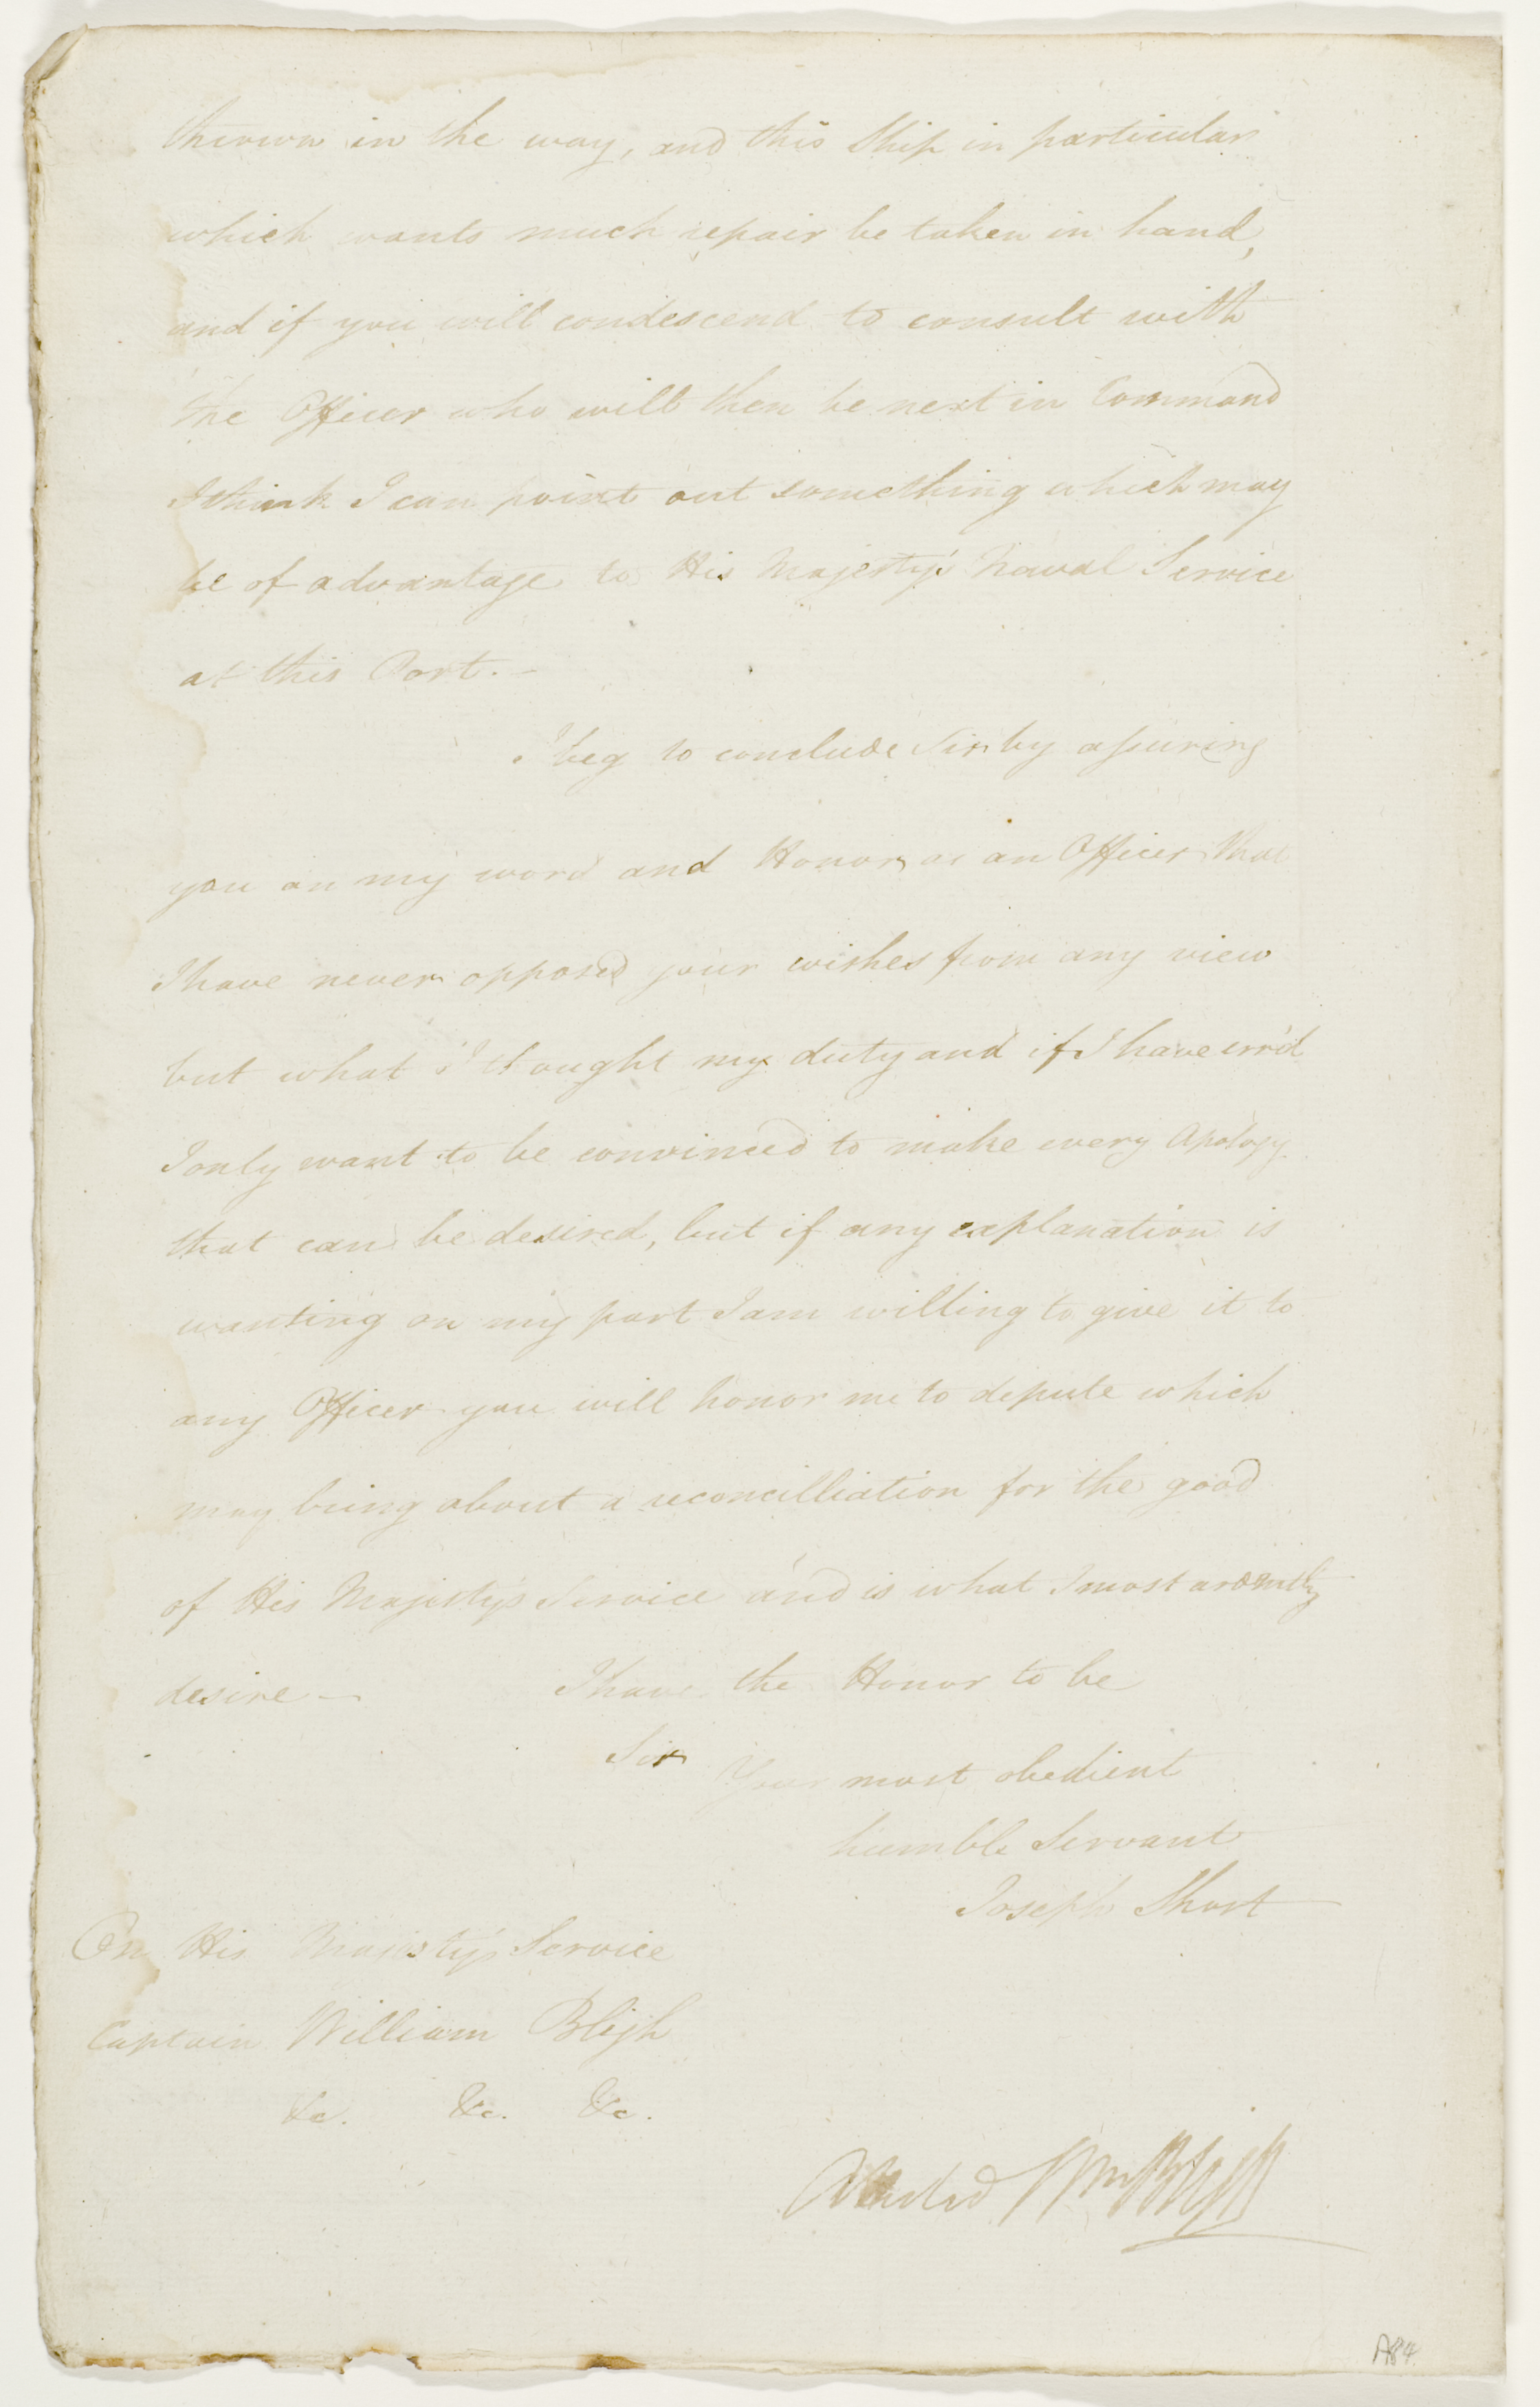 thrown in the way, and this Ship in particular
which wants much repair be taken in hand,
and if you will condescend to consult with
the Officer who will then be next in Command
I think I can point out something which may
be of advantage to His Majesty's Naval Service
at this Port. —
I beg to conclude Sir by assuring
you on my word and Honor as an Officer that
I have never opposed your wishes from any view
but what I thought my duty and if I have err'd
I only want to be convinced to make every Apology
that can be desired, but if any explanation is
wanting on my part I am willing to give it to
any Officer you will honor me to depute which
may bring about a reconcilliation for the good
of His Majesty's Service and is what I most ardently
desire — I have the Honor to be
Sir Your most obedient
humble Servant
Joseph Short
On His Majesty's Service
Captain William Bligh
&c. &c. &c.
Attested Wm Bligh
A84